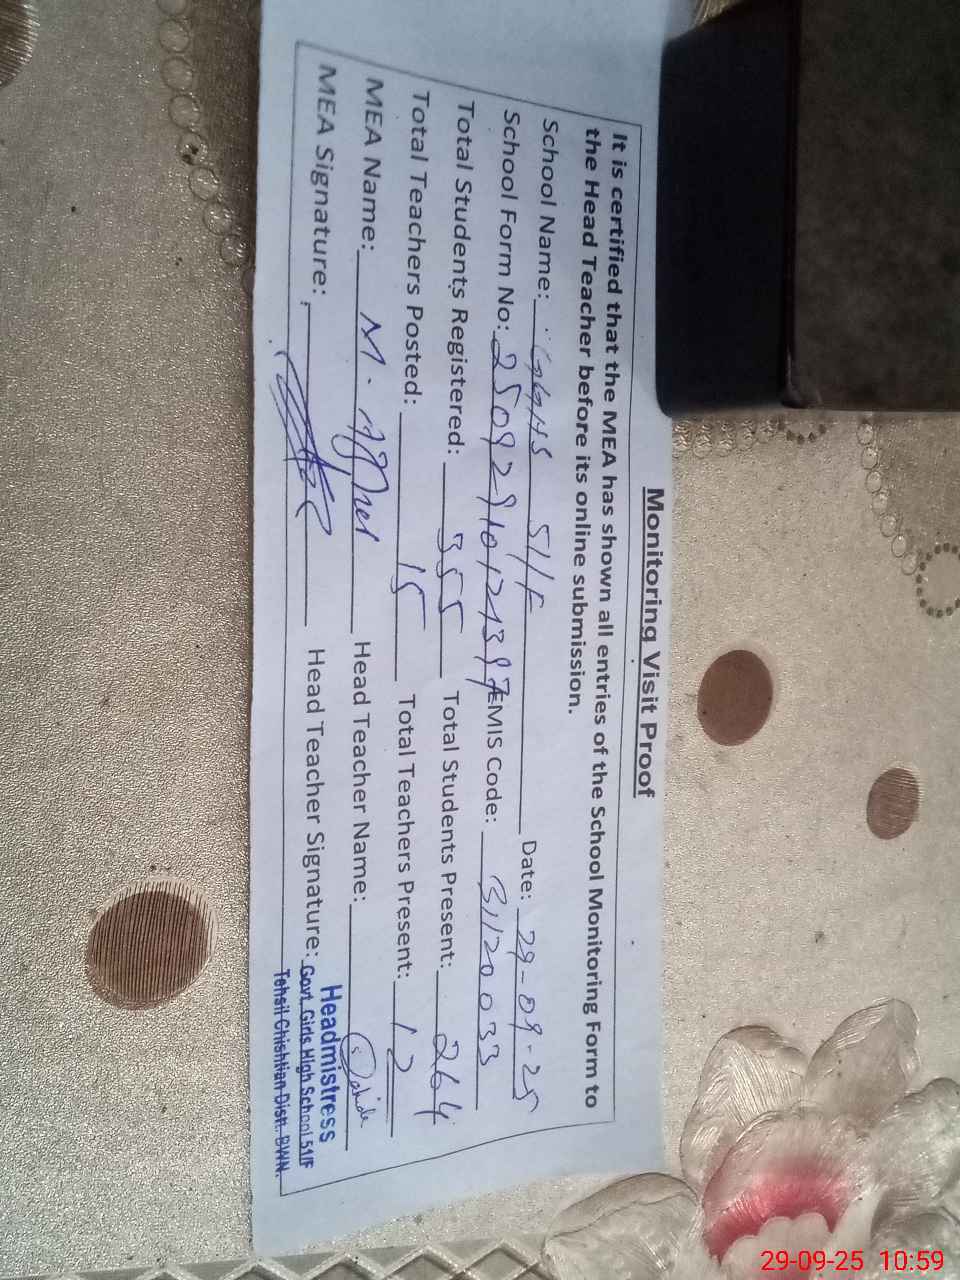 Monitoring Visit Proof
It is certified that the MEA has shown all entries of the School Monitoring Form to
the Head Teacher before its online submission.
School Name: GGHS 51/F Date: 29-09-25
School Form No: EMIS Code: 31120033
Total Students Registered: 355 Total Students Present: 264
Total Teachers Posted: 15 Total Teachers Present: 12
MEA Name: M. Head Teacher Name:
MEA Signature: Head Teacher Signature:
Headmistress
Govt. Girls High School 51/F
Tehsil Chishtian Distt. BWN.
29-09-25 10:59